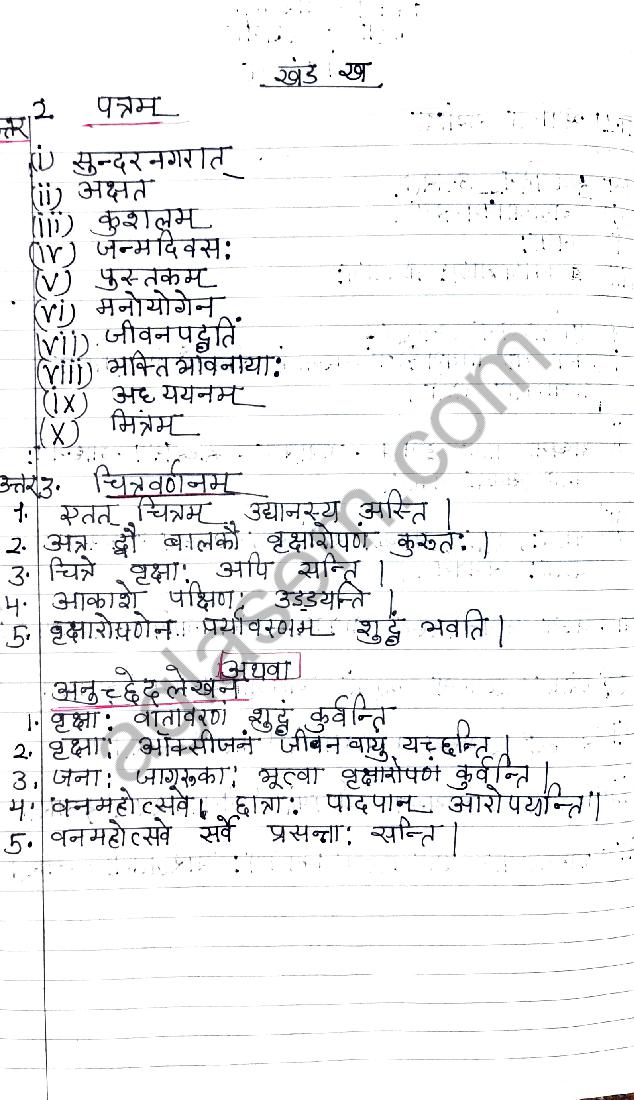 खंड ख
उत्तर 2 पत्रम
(i) सुन्दरनगरात्
(ii) अक्षत
(iii) कुशलम
(iv) जन्मदिवस:
(v) पुस्तकम
(vi) मनोयोगेन
(vii) जीवनपद्धतिं
(viii) भक्तिभावनाया:
(ix) अध्ययनम
(x) मित्रम
उत्तर 3. चित्रवर्णनम
1. एतत् चित्रम उद्यानस्य अस्ति |
2. अत्र द्वौ बालकौ वृक्षारोपणं कुरुत: |
3. चित्रे वृक्षा: अपि सन्ति |
4. आकाशे पक्षिण: उड्डयन्ति |
5. वृक्षारोपणेन पर्यावरणम शुद्धं भवति |
अथवा
अनुच्छेद लेखन
1. वृक्षा: वातावरणं शुद्धं कुर्वन्ति
2. वृक्षा: ऑक्सीजनं जीवनवायु यच्छन्ति |
3. जना: जागरुका: भूत्वा वृक्षारोपणं कुर्वन्ति |
4. वनमहोत्सवे छात्रा: पादपान आरोपयन्ति |
5. वनमहोत्सवे सर्वे प्रसन्ना: सन्ति |
aglasem.com